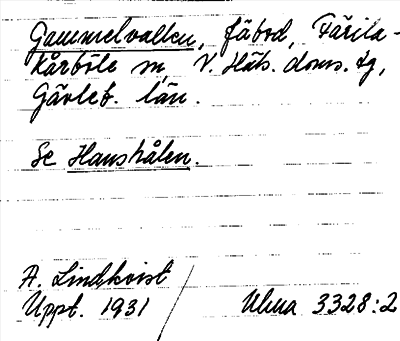 Gammelvallen, fäbod, Färila-
Kårböle sn, V. Häls. doms. tg,
Gävleb. län.
Se Hanshålen.
A. Lindkvist
Uppt. 1931 / Ulma 3328:2